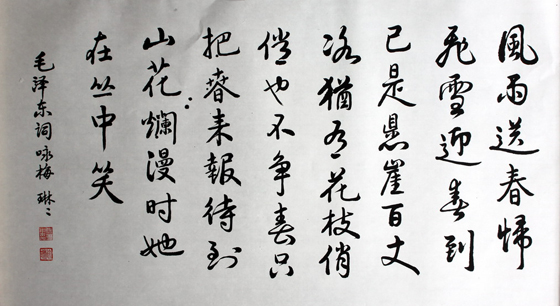 風雨送春歸
飛雪迎春到
已是悬崖百丈
冰猶有花枝俏
俏也不争春只
把春来報待到
山花爛漫时她
在丛中笑
毛泽东词咏梅 琳〻